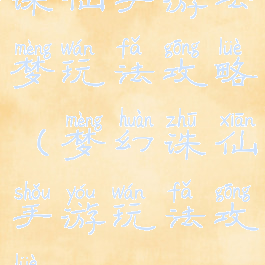 诛 仙 手 游
mèng wán fǎ gōng lüè
梦 玩 法 攻 略
mèng huàn zhū xiān
（ 梦 幻 诛 仙
shǒu yóu wán fǎ gōng
手 游 玩 法 攻
lüè